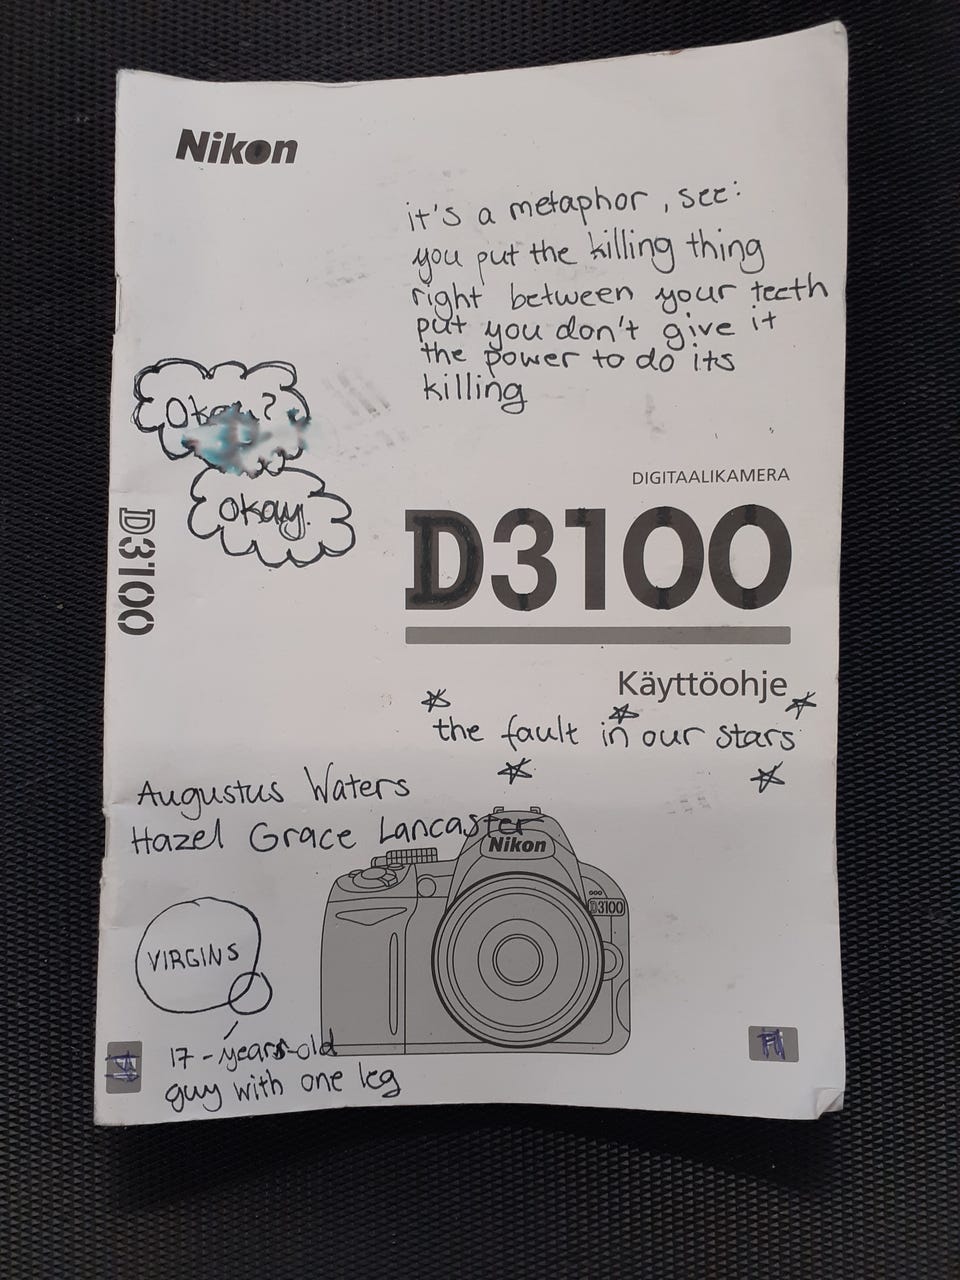 Nikon
it's a metaphor, see:
you put the killing thing
right between your teeth
put you don't give it
the power to do its
killing
Okay?
okay.
DIGITAALIKAMERA
D3100
D3100
Käyttöohje
the fault in our stars
Augustus Waters
Hazel Grace Lancaster
Nikon
D3100
VIRGINS
17-years-old
guy with one leg